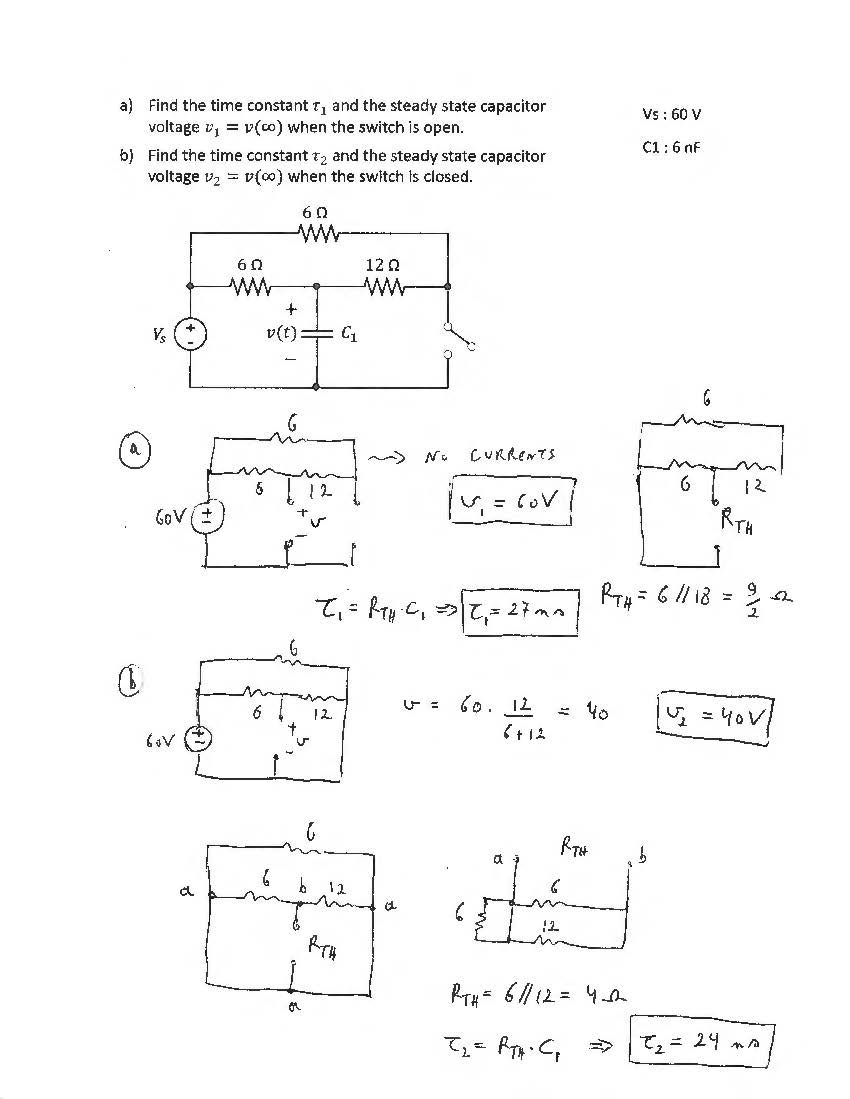 a) Find the time constant τ₁ and the steady state capacitor
voltage v₁ = v(∞) when the switch is open.
Vs : 60 V
b) Find the time constant τ₂ and the steady state capacitor
voltage v₂ = v(∞) when the switch is closed.
C1 : 6 nF
6 Ω
6 Ω 12 Ω
+
Vs + - v(t) C₁
−
a
6
6 12
60V + -
+ v -
~> No CURRENTS
v₁ = 60V
6
6 12
R_TH
τ₁ = R_TH · C₁ ⇒ τ₁ = 27 ns
R_TH = 6 // 18 = 9/2 Ω
b
6
6 12
60V + -
+ v -
v = 60 · 12/(6+12) = 40
v₂ = 40V
6
a 6 b 12 a
R_TH
a
a R_TH b
6
6
12
R_TH = 6//12 = 4 Ω
τ₂ = R_TH · C₁ ⇒ τ₂ = 24 ns